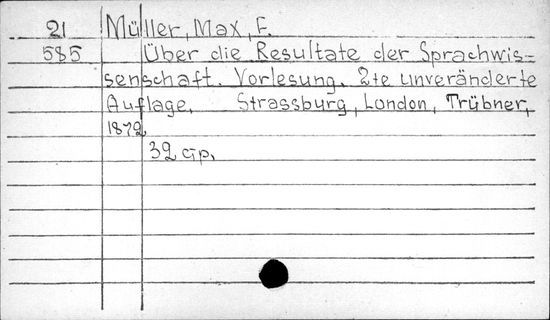 21 Müller, Max, F.
585 Über die Resultate der Sprachwis=
senschaft. Vorlesung. 2te unveränderte
Auflage. Strassburg, London, Trübner,
1872.
32 стр.